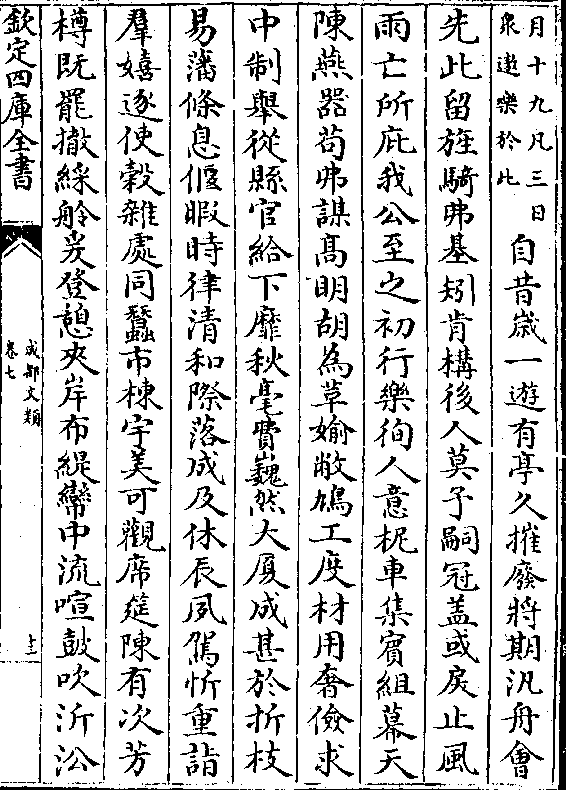 月十九凡三日
衆遨樂於此
自昔歲一遊有亭久摧廢將期汎舟會
先此留旌騎弗基矧肯構後人莫予嗣冠盖或戾止風
雨亡所庇我公至之初行樂徇人意柅車集賓組幕天
陳燕器苟弗謀髙明胡為草媮敝鳩工度材用奢儉求
中制舉從縣官給下靡秋毫費巍然大厦成甚於折枝
易藩條息偃暇時律清和際落成及休辰夙駕忻重詣
羣嬉逐使轂雜處同蠶市棟宇美可觀席筵陳有次芳
樽既罷撤綵舲爰登憩夾岸布緹幕中流喧鼓吹沂沿
欽定四庫全書
成都文類
卷七
十三